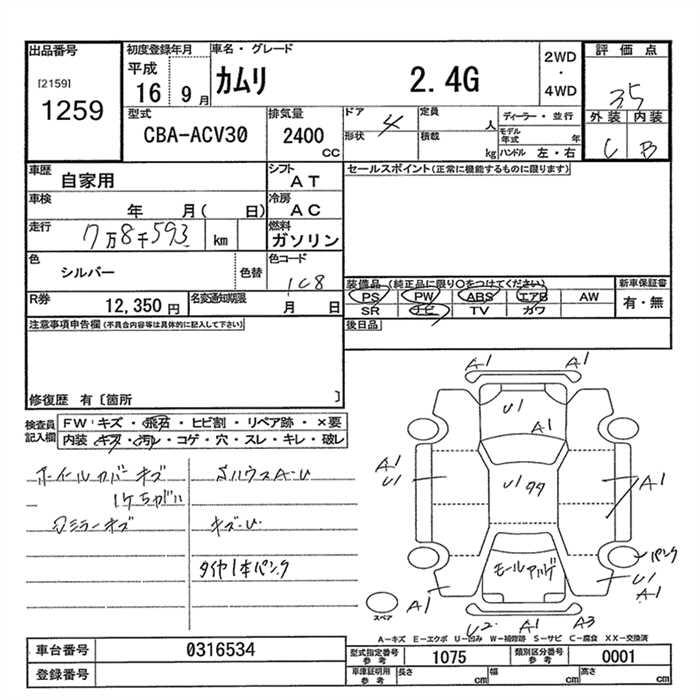 出品番号
[2159]
1259
初度登録年月
平成
16 9月
車名・グレード
カムリ 2.4G
2WD
・
4WD
評価点
35
外装 内装
C B
型式
CBA-ACV30
排気量
2400
CC
ドア 4
形状
定員 人
積載 kg
ディーラー・並行
モデル年式 年
ハンドル 左・右
車歴
自家用
シフト
AT
車検
年 月( 日)
冷房
AC
走行
7万8千593 km
燃料
ガソリン
色
シルバー
色替
色コード
1C8
R券
12,350円
名変通知期限
月 日
セールスポイント(正常に機能するものに限ります)
装備品(純正品に限り○をつけてください)
PS PW ABS エアB AW
SR ナビ TV カワ
新車保証書
有・無
後日品
注意事項申告欄(不具合内容等は具体的に記入して下さい)
修復歴 有〔箇所 〕
検査員記入欄
FW:キズ・飛石・ヒビ割・リペア跡・×要
内装:キズ・汚レ・コゲ・穴・スレ・キレ・破レ
ホイールカバーキズ
1ケちがい
ミラーキズ
キズ・U
タイヤ1本パンク
A1 A1
U1
A1
A1
U1
U1
A1
モールアルゲ
パンク
U1
A1
A1
スペア
U2 A1 A3
A-キズ E-エクボ U-凹み W-補修跡 S-サビ C-腐食 XX-交換済
車台番号 0316534
登録番号
型式指定番号 参考 1075
類別区分番号 参考 0001
車庫証明用 参考
長さ cm 幅 cm 高さ cm